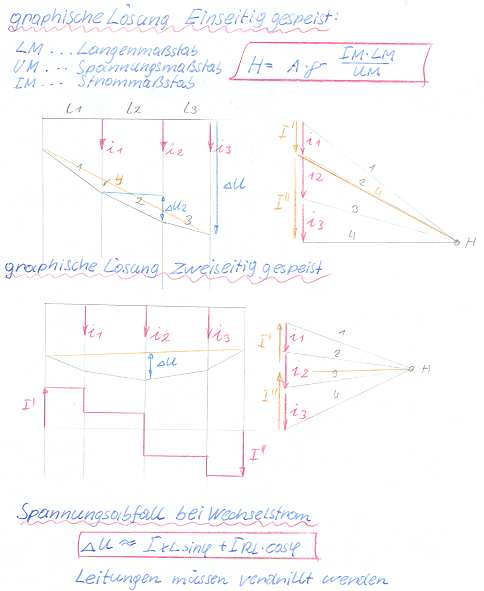 graphische Lösung Einseitig gespeist:
LM ... Längenmaßstab
UM ... Spannungsmaßstab
IM ... Strommaßstab
H = A·γ IM·LM / UM
L1 L2 L3
i1 i2 i3
1 4 2 3
ΔU2
ΔU
I' I''
i1 i2 i3
1 2 4 3 4
H
graphische Lösung zweiseitig gespeist
i1 i2 i3
ΔU
I' I''
I' I''
i1 i2 i3
1 2 3 4
H
Spannungsabfall bei Wechselstrom
ΔU ≈ IxL sinφ + IRL·cosφ
Leitungen müssen verdrillt werden